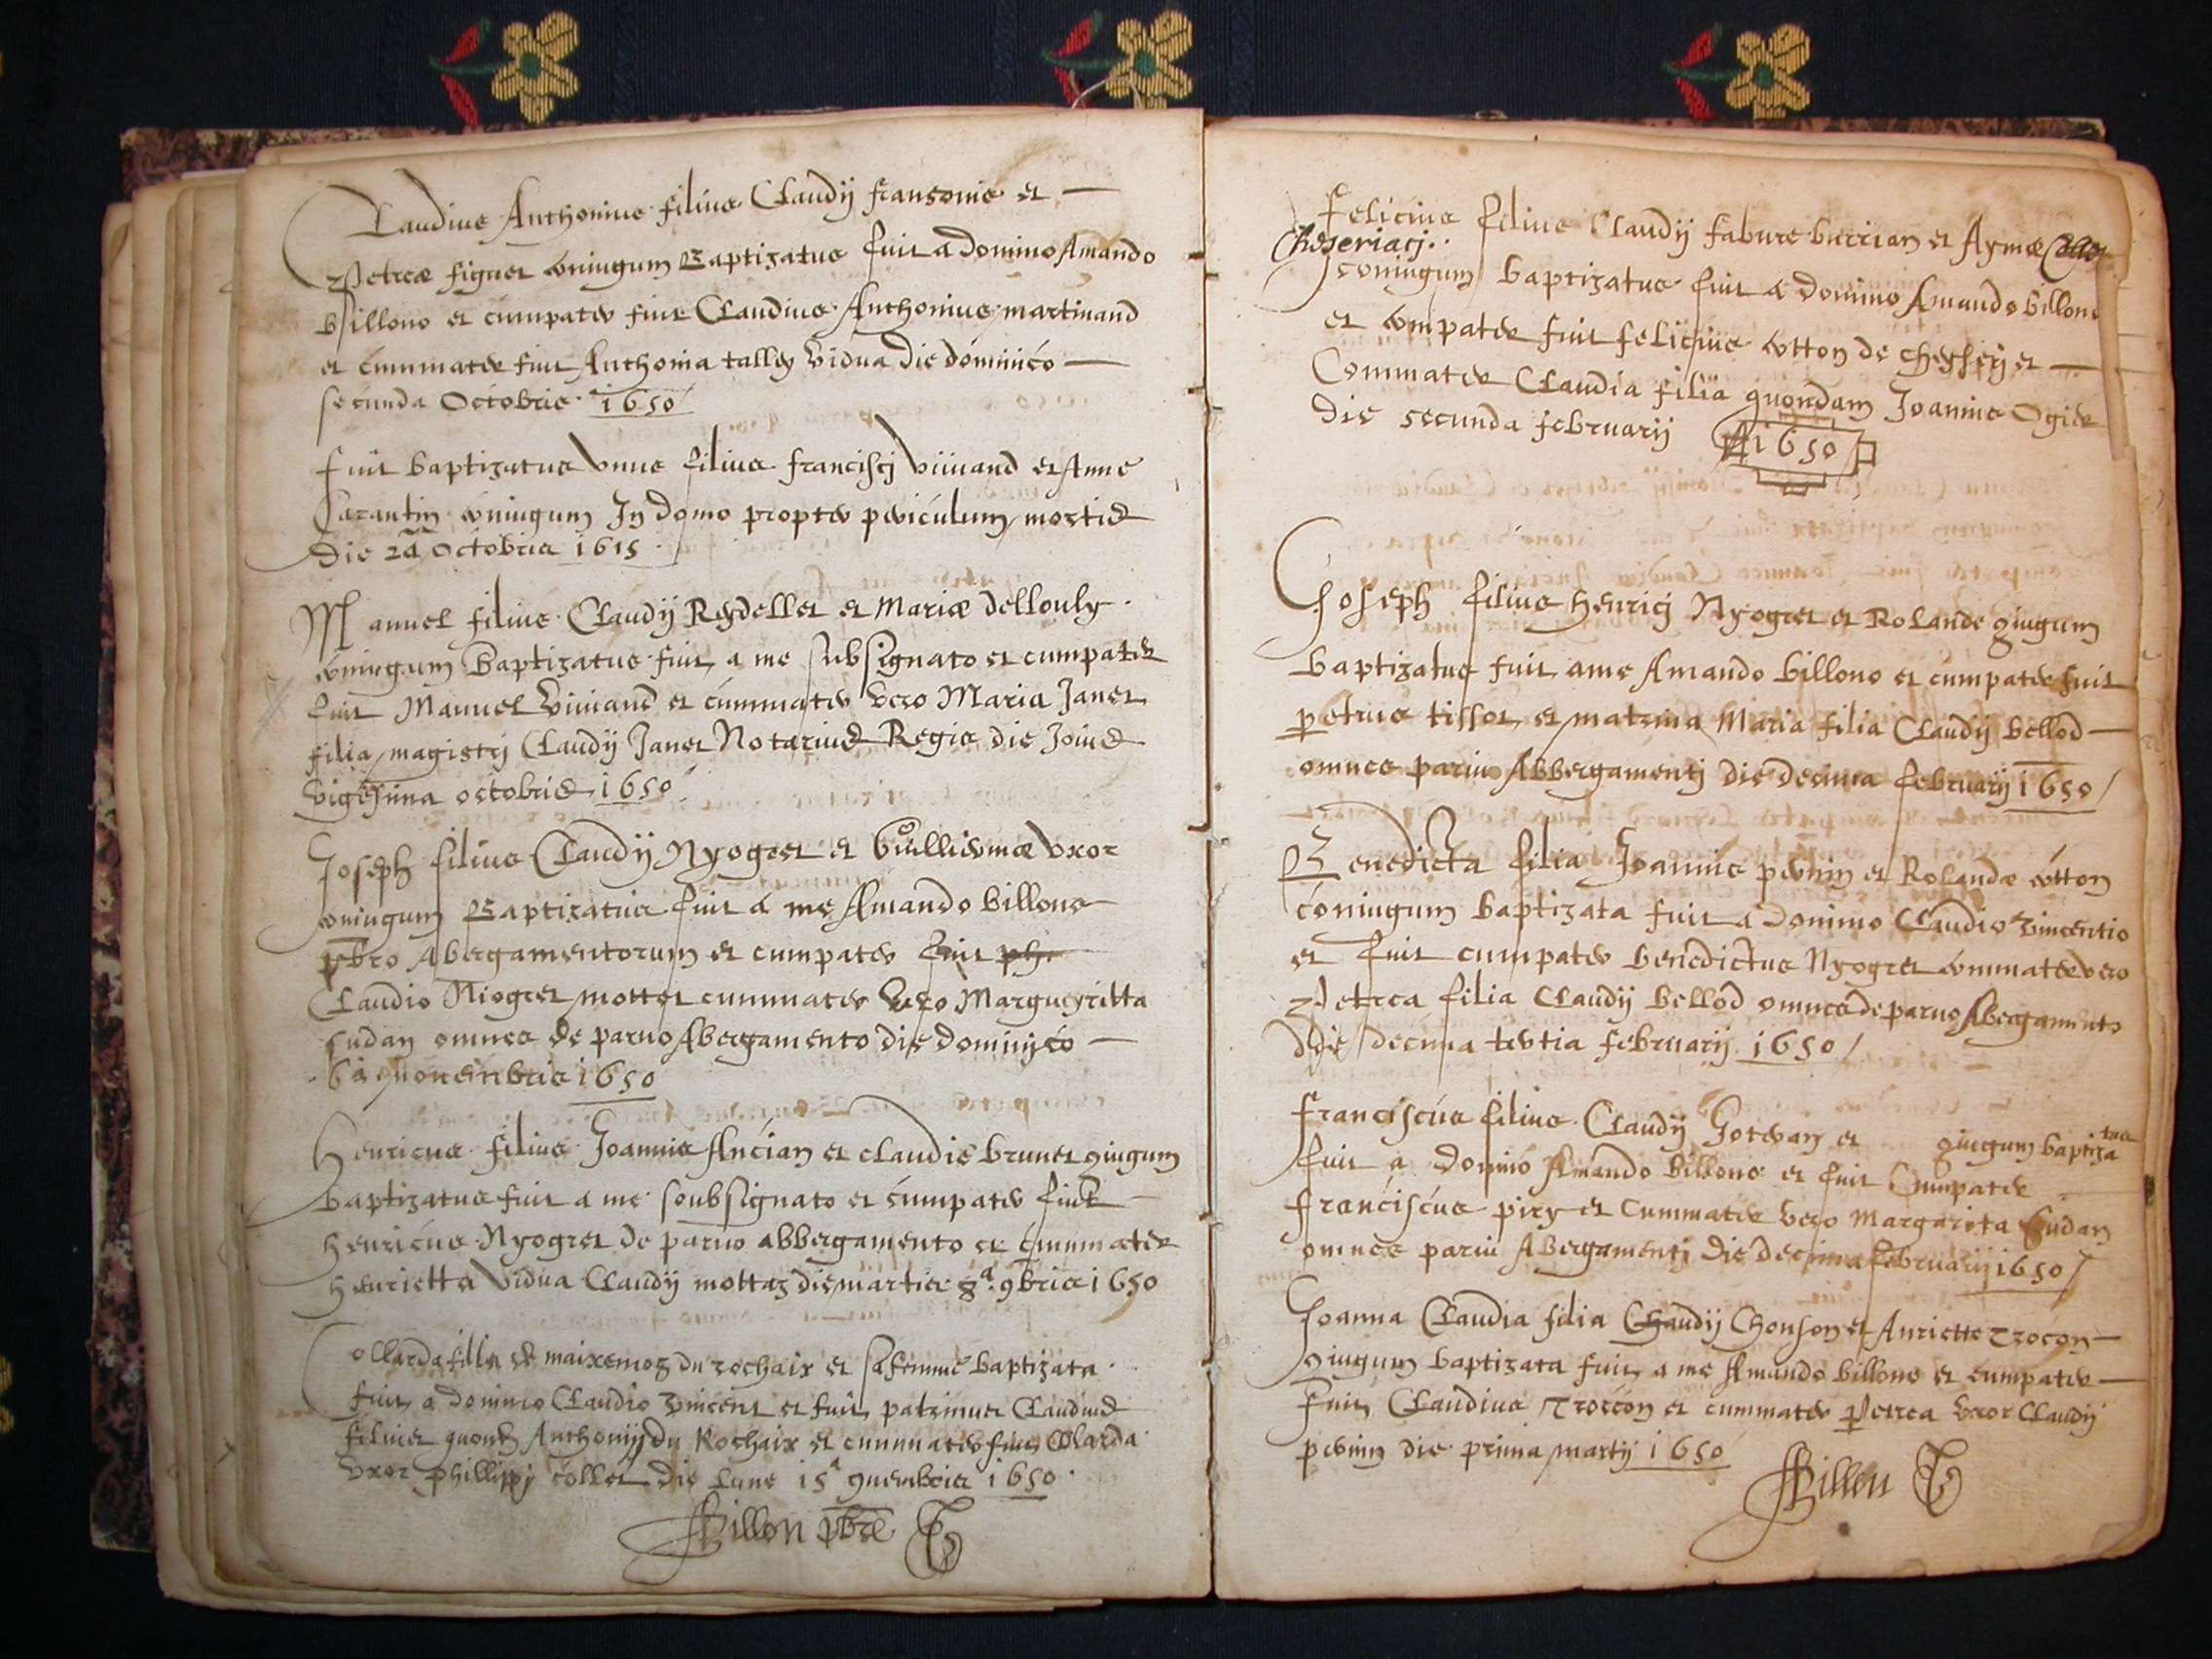 Claudius Anthonius filius Claudij fransonis et
Petreæ figuet coniugum Baptizatus fuit a domino Amando
billono et cumpater fuit Claudius Anthonius martinand
et cummater fuit Anthonia talley vidua die dominico
secunda Octobris 1650
fuit baptizatus unus filius francisci viuand et Anne
coniugum In domo propter periculum mortis
die 2a Octobris 1615
Manuel filius Claudij Reydellet et Mariæ dellouly
coniugum Baptizatus fuit a me subsignato et cumpater
fuit Manuel viuand et cummater vero Maria Janet
filia magistri Claudij Janet Notarius Regis die Jouis
vigesima octobris 1650
Joseph filius Claudij Nyogret et Guilliermæ uxor
coniugum Baptizatus fuit a me Amando billono
pbro Abergamentorum et cumpater fuit
Claudio Niogret mottet cummater vero Margueritta
sudan omnes de paruo Abergamento die dominico
6a nouembris 1650
Henricus filius Joannis Ancian et claudie brunet giugum
baptizatus fuit a me soubsignato et cumpater fuit
henricus Nyogret de paruo abbergamento et cummater
henrietta vidua Claudij mottaz die martis 8a 9bris 1650
Collarda filla de maixemoz du rochaix et sa femme baptizata
fuit a domino Claudio vincent et fuit patrinus Claudius
filius quond Anthonij du Rochaix et cummater fuit Colarda
uxor phillippi collet die lune 15a 9uembris 1650
Billon pbre
Felicius filius Claudij fabure burrian et Aymæ
Cheseriaci
coniugum baptizatus fuit a domino Amando billono
et compater fuit felicius cotton de chesery et
Commater Claudia filia quondam Joannis Ogier
die secunda februarij 1650
Joseph filius henrici Nyogret et Rolande giugum
baptizatus fuit a me Amando billono et cumpater fuit
petrus tissot et matrina Maria filia Claudij bellod
omnes parui Abbergamenti die decima februarij 1650
Benedicta filia Joannis perrin et Rolandæ cotton
coniugum baptizata fuit a domino Claudio vincentio
et fuit cumpater benedictus Nyogret commater vero
Petrea filia Claudij bellod omnes de paruo Abergamento
die decima tertia februarij 1650
Franciscus filius Claudij Goteran et giugum baptizatus
fuit a domino Amando billono et fuit Cumpater
franciscus piry et Cummater vero margarita sudan
omnes parui Abergamenti die decima februarij 1650
Joanna Claudia filia Claudij Chonson et Anriette Trocon
giugum baptizata fuit a me Amando billono et cumpater
fuit Claudius Troccon et cummater petrea uxor Claudij
perrin die prima martij 1650
Billon